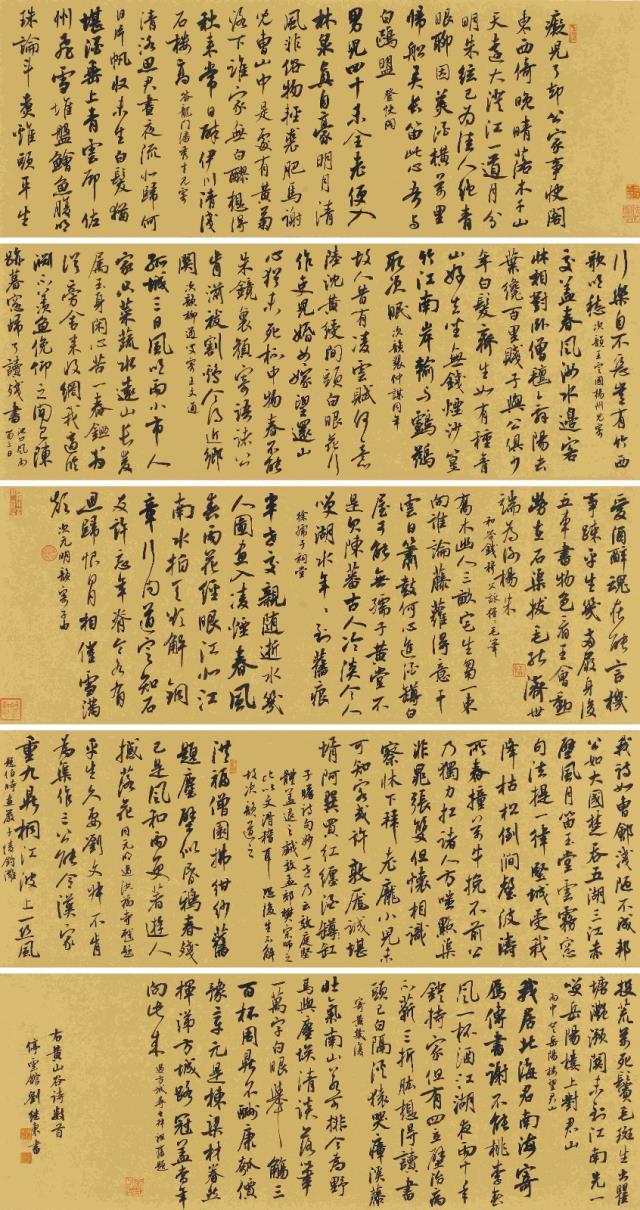 癡兒了却公家事快閣
東西倚晚晴落木千山
天遠大澄江一道月分
明朱弦已為佳人絕青
眼聊因美酒橫萬里
歸船弄長笛此心吾與
白鷗盟 登快閣
男兒四十未全老便入
林泉真自豪明月清
風非俗物輕裘肥馬謝
兒曹山中是處有黃菊
洛下誰家無白醪想得
秋来常日醉伊川清淺
石樓高 答龍門潘秀才見寄
清洛思君晝夜流北歸何
日片帆收未生白髮猶
堪酒垂上青雲卻佐
州飛雪堆盤鱠魚腹明
珠論斗煮雞頭平生
行樂自不惡豈有竹西
歌吹愁 次韻王定國揚州見寄
交蓋春風汝水邊客
床相對卧僧氈舞陽去
葉纔百里賤子與公俱少
年白髮齊生如有種青
山好去坐無錢煙沙篁
竹江南岸輸與鸕鶿
取次眠 次韻裴仲謀同年
故人昔有凌雲賦何意
陸沉黃綬間頭白眼花行
作吏兒婚女嫁望還山
心猶未死杯中物春不能
朱鏡裏顏寄語諸公
肯湔祓割雞今得近鄉
關 次韻柳通叟寄王文通
孤城三日風吹雨小市人
家只菜蔬水遠山長雙
屬玉身閑心苦一舂鋤翁
從旁舍来收網我適臨
淵不羨魚俛仰之間已陳
跡暮窗歸了讀殘書 池口風雨留三日
愛酒醉魂在能言機
事疎平生幾兩屐身後
五車書物色看王會勳
勞在石渠拔毛能濟世
端為謝楊朱
和答錢穆父詠猩猩毛筆
喬木幽人三畝宅生芻一束
向誰論藤蘿得意干
雲日簫鼓何心進酒罇白
屋可能無孺子黃堂不
是欠陳蕃古人冷淡今人
笑湖水年年到舊痕
徐孺子祠堂
半世交親隨逝水幾
人圖畫入凌煙春風
春雨花經眼江北江
南水拍天欲解銅
章行問道定知石
友許忘年脊令各有
思歸恨日月相催雪滿
顛 次元明韻寄子由
我詩如曹鄶淺陋不成邦
公如大國楚吞五湖三江赤
壁風月笛玉堂雲霧窗
句法提一律堅城受我
降枯松倒澗壑波濤
所舂撞萬牛挽不前公
乃獨力扛諸人方嗤點渠
非晁張雙但懷相識
察床下拜老龐小兒未
可知客或許敦厖誠堪
壻阿巽買紅纏酒缸
子瞻詩句妙一世乃云效庭堅
體蓋退之戲效孟郊樊宗師之
比以文滑稽耳恐後生不解
故次韻道之
洪福僧園拂紺紗舊
題塵壁似昏鴉春殘
已是風和雨更著遊人
撼落花 同元明過洪福寺戲題
平生久要劉文叔不肯
為渠作三公能令漢家
重九鼎桐江波上一絲風
題伯時畫嚴子陵釣灘
投荒萬死鬢毛斑生出瞿
塘灩滪關未到江南先一
笑岳陽樓上對君山
雨中登岳陽樓望君山
我居北海君南海寄
雁傳書謝不能桃李春
風一杯酒江湖夜雨十年
燈持家但有四立壁治病
不蘄三折肱想得讀書
頭已白隔溪猿哭瘴溪藤
寄黃幾復
壯氣南山若可排今為野
馬與塵埃清談落筆
一萬字白眼舉觴三
百杯周鼎不酬康瓠價
豫章元是棟梁材眷然
揮涕方城路冠蓋當年
向此来 過方城尋七叔祖舊題
右黃山谷詩數首
停雲館劉繼東書